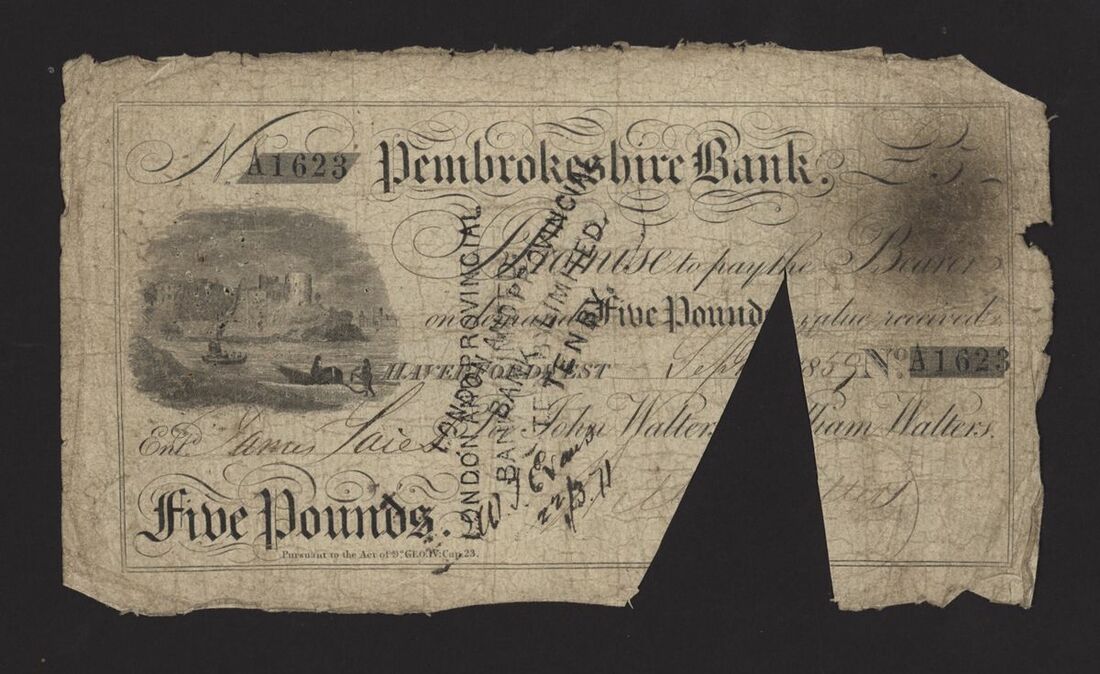 No A1623 Pembrokeshire Bank. £5
I Promise to pay the Bearer
on demand Five Pound value received
HAVERFORDWEST Sept 1859 No. A1623
Entd. James Saies For John Walter liam Walters.
Five Pounds.
Pursuant to the Act of 9o. GEO. IV: Cap. 23.
LONDON AND PROVINCIAL
BANK LIMITED.
TENBY.
LONDON AND PROVINCIAL
BANK
W J Evans
22/3.71